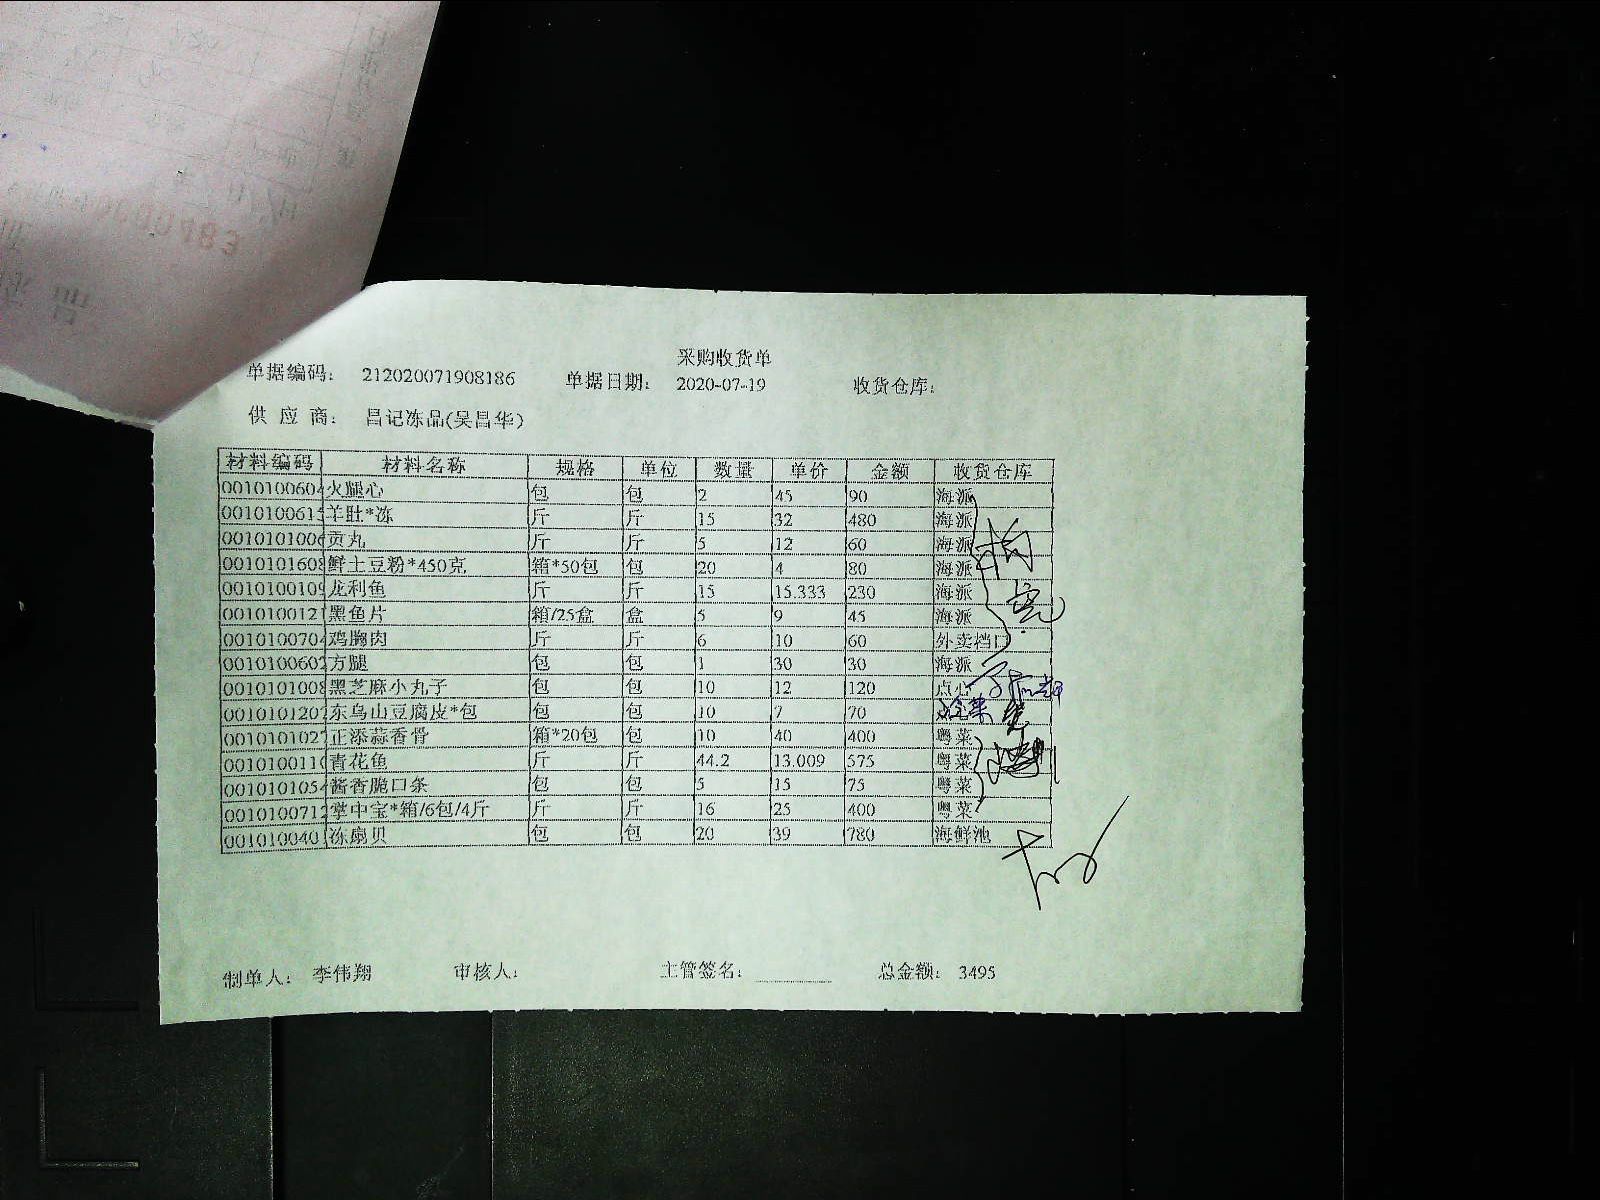 采购收货单
单据编码： 212020071908186 单据日期： 2020-07-19 收货仓库：
供 应 商： 昌记冻品(吴昌华)
材料编码 材料名称 规格 单位 数量 单价 金额 收货仓库
0010100604 火腿心 包 包 2 45 90 海派
0010100615 羊肚*冻 斤 斤 15 32 480 海派
0010101006 贡丸 斤 斤 5 12 60 海派
0010101608 鲜土豆粉*450克 箱*50包 包 20 4 80 海派
0010100109 龙利鱼 斤 斤 15 15.333 230 海派
0010100121 黑鱼片 箱/25盒 盒 5 9 45 海派
0010100704 鸡胸肉 斤 斤 6 10 60 外卖档口
0010100602 方腿 包 包 1 30 30 海派
0010101008 黑芝麻小丸子 包 包 10 12 120 点心
0010101207 东乌山豆腐皮*包 包 包 10 7 70
0010101027 正添蒜香骨 箱*20包 包 10 40 400 粤菜
0010100110 青花鱼 斤 斤 44.2 13.009 575 粤菜
0010101054 酱香脆口条 包 包 5 15 75 粤菜
0010100712 掌中宝*箱/6包/4斤 斤 斤 16 25 400 粤菜
001010040 冻扇贝 包 包 20 39 780 海鲜池
制单人： 李伟翔 审核人： 主管签名： 总金额： 3495